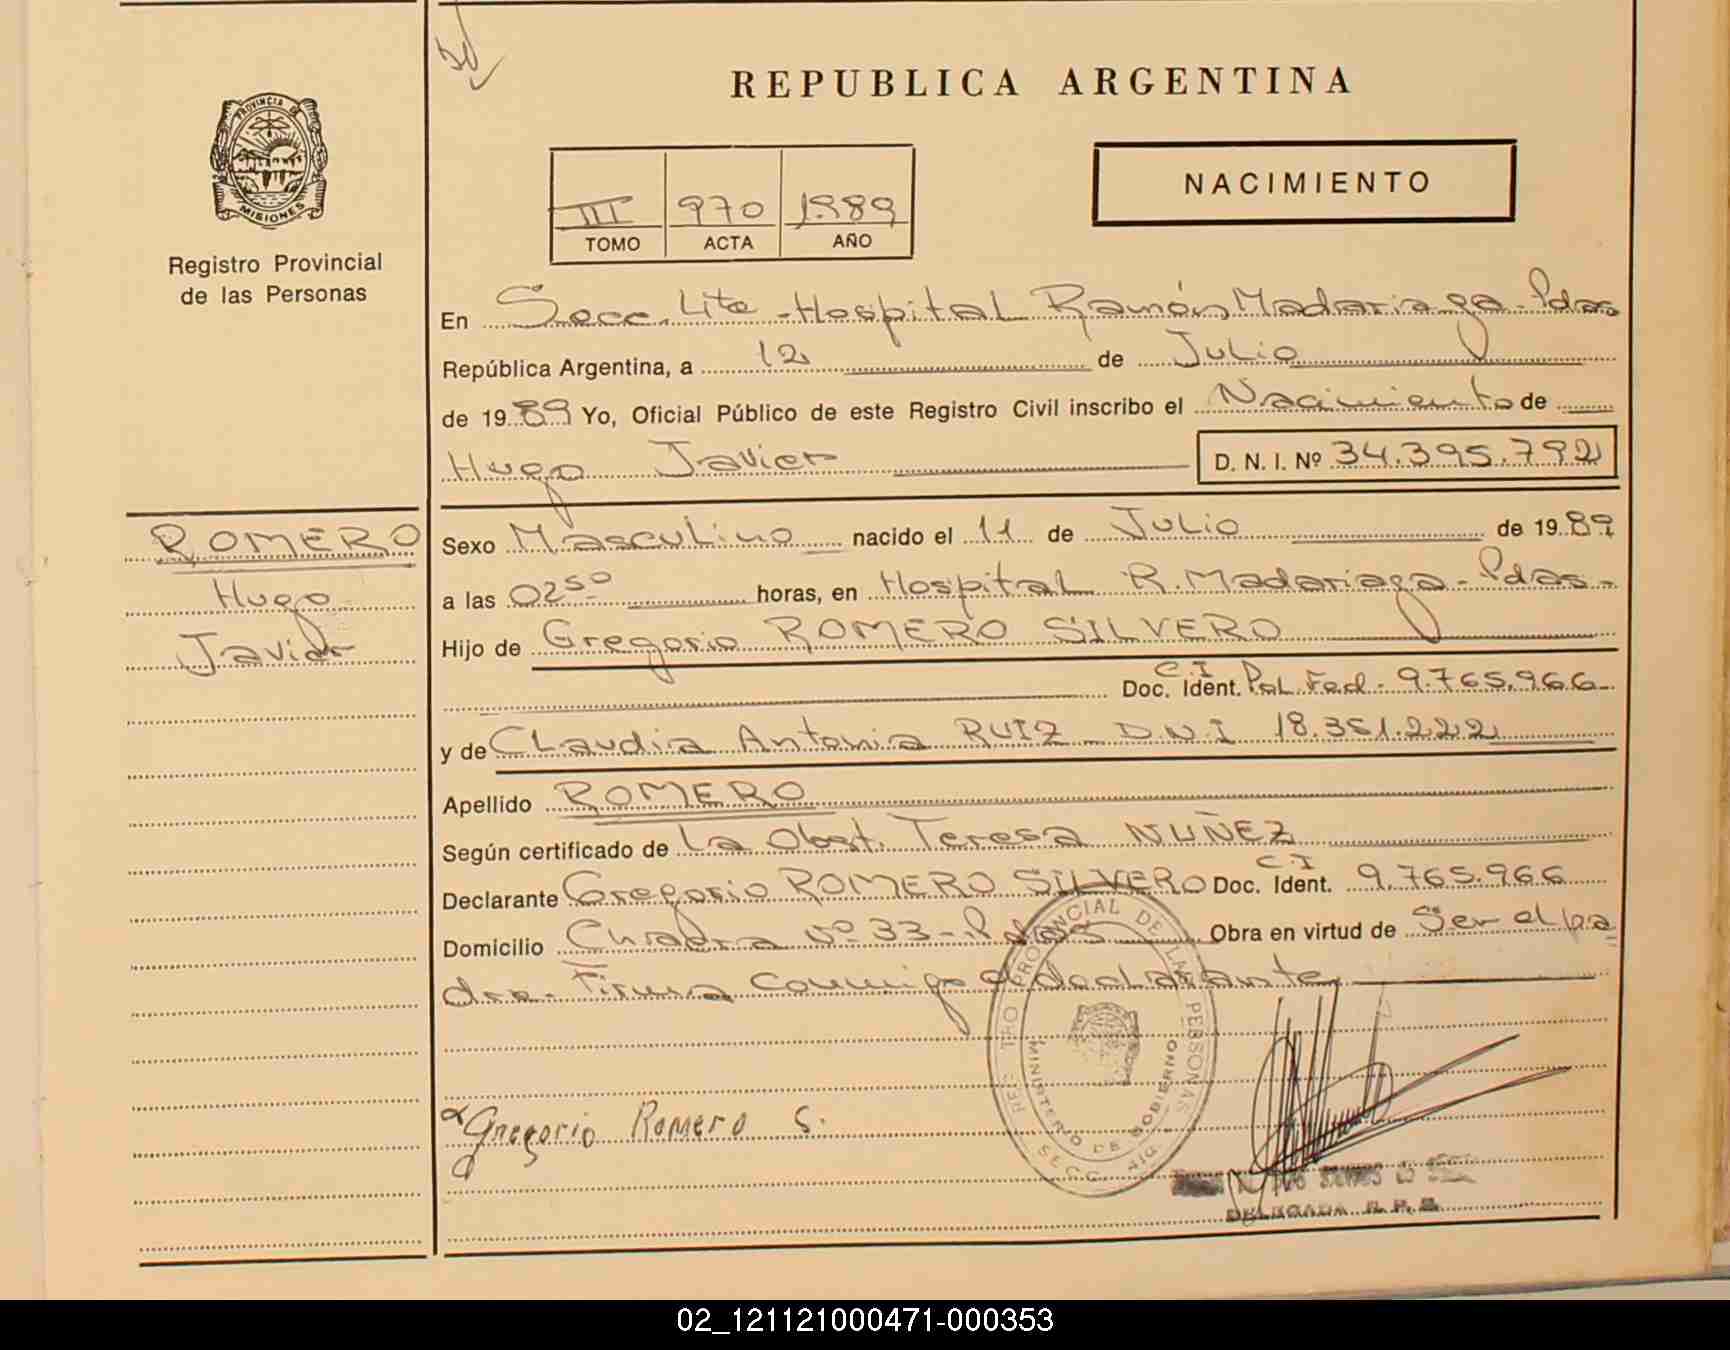 REPUBLICA ARGENTINA
PROVINCIA DE
MISIONES
Registro Provincial
de las Personas
NACIMIENTO
III 970 1989
TOMO ACTA AÑO
En Secc. 4ta - Hospital Ramón Madariaga - Pdas
República Argentina, a 12 de Julio
de 1989 Yo, Oficial Público de este Registro Civil inscribo el Nacimiento de
Hugo Javier D. N. I. Nº 34.395.792
ROMERO
Hugo
Javier
Sexo Masculino nacido el 11 de Julio de 1989
a las 02 50 horas, en Hospital R. Madariaga - Pdas -
Hijo de Gregorio ROMERO SILVERO
Doc. Ident. C.I Pol. Fed - 9.765.966
y de Claudia Antonia RUIZ - D.N.I 18.351.222
Apellido ROMERO
Según certificado de La Obst. Teresa NUÑEZ
Declarante Gregorio ROMERO SILVERO Doc. Ident. C.I 9.765.966
Domicilio Chacra Nº 33 - Pdas Obra en virtud de Ser el pa
dre - Firma Conmigo el declarante
PROVINCIAL DE LAS PERSONAS
MINISTERIO DE GOBIERNO
SECC. 4ta
Gregorio Romero S.
DELEGADA R. P. P.
02_121121000471-000353